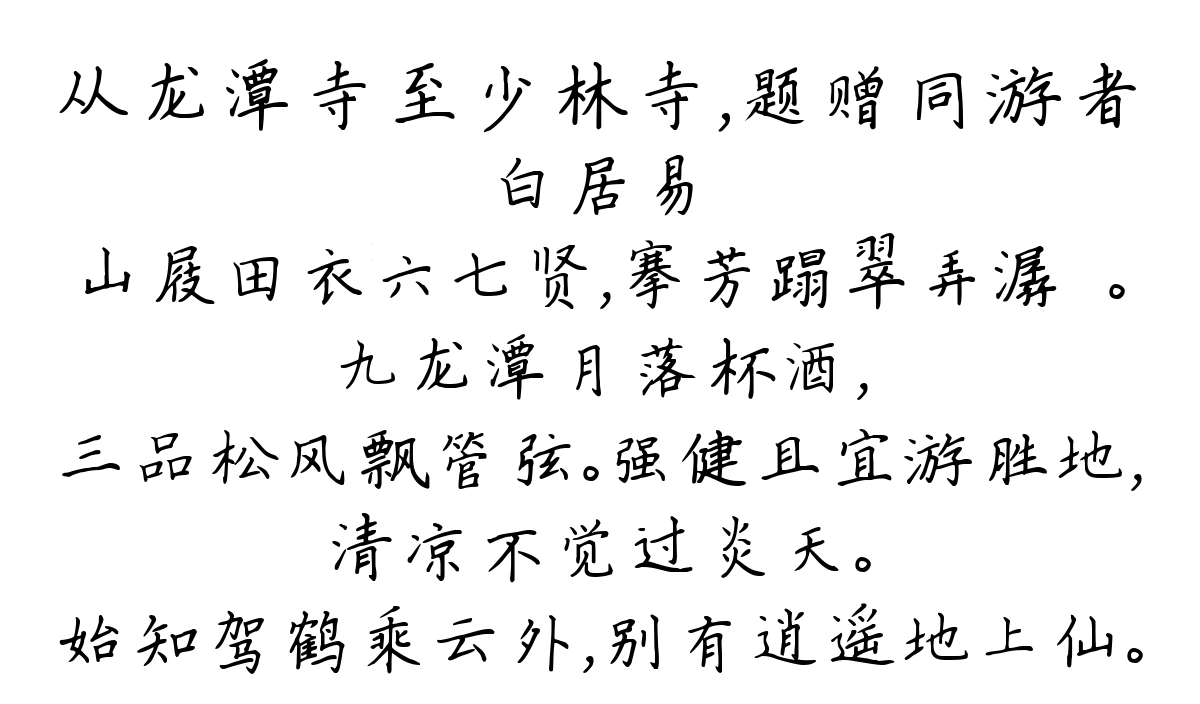 从龙潭寺至少林寺,题赠同游者
白居易
山屐田衣六七贤,搴芳蹋翠弄潺。
九龙潭月落杯酒,
三品松风飘管弦。强健且宜游胜地,
清凉不觉过炎天。
始知驾鹤乘云外,别有逍遥地上仙。